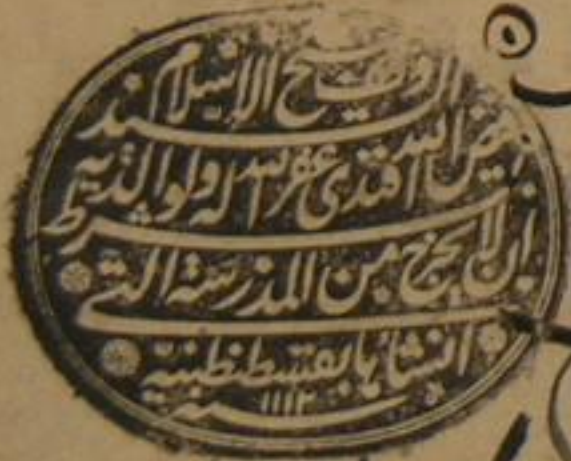 ٥
وقف شيخ الاسلام السيد
فيض الله افندى غفر الله له ولوالديه
بشرط ان لا يخرج من المدرسة التى
انشأها بقسطنطينية
سنة ١١١٢